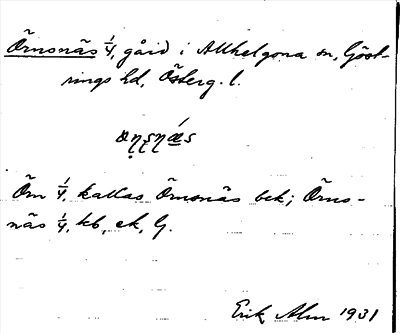 Örnsnäs 1/4, gård i Allhelgona sn, Göst-
rings hd, Österg. l.
Örn 1/4, kallas Örnsnäs bek; Örns-
näs 1/4, kb, ek, G.
Erik Alm 1931